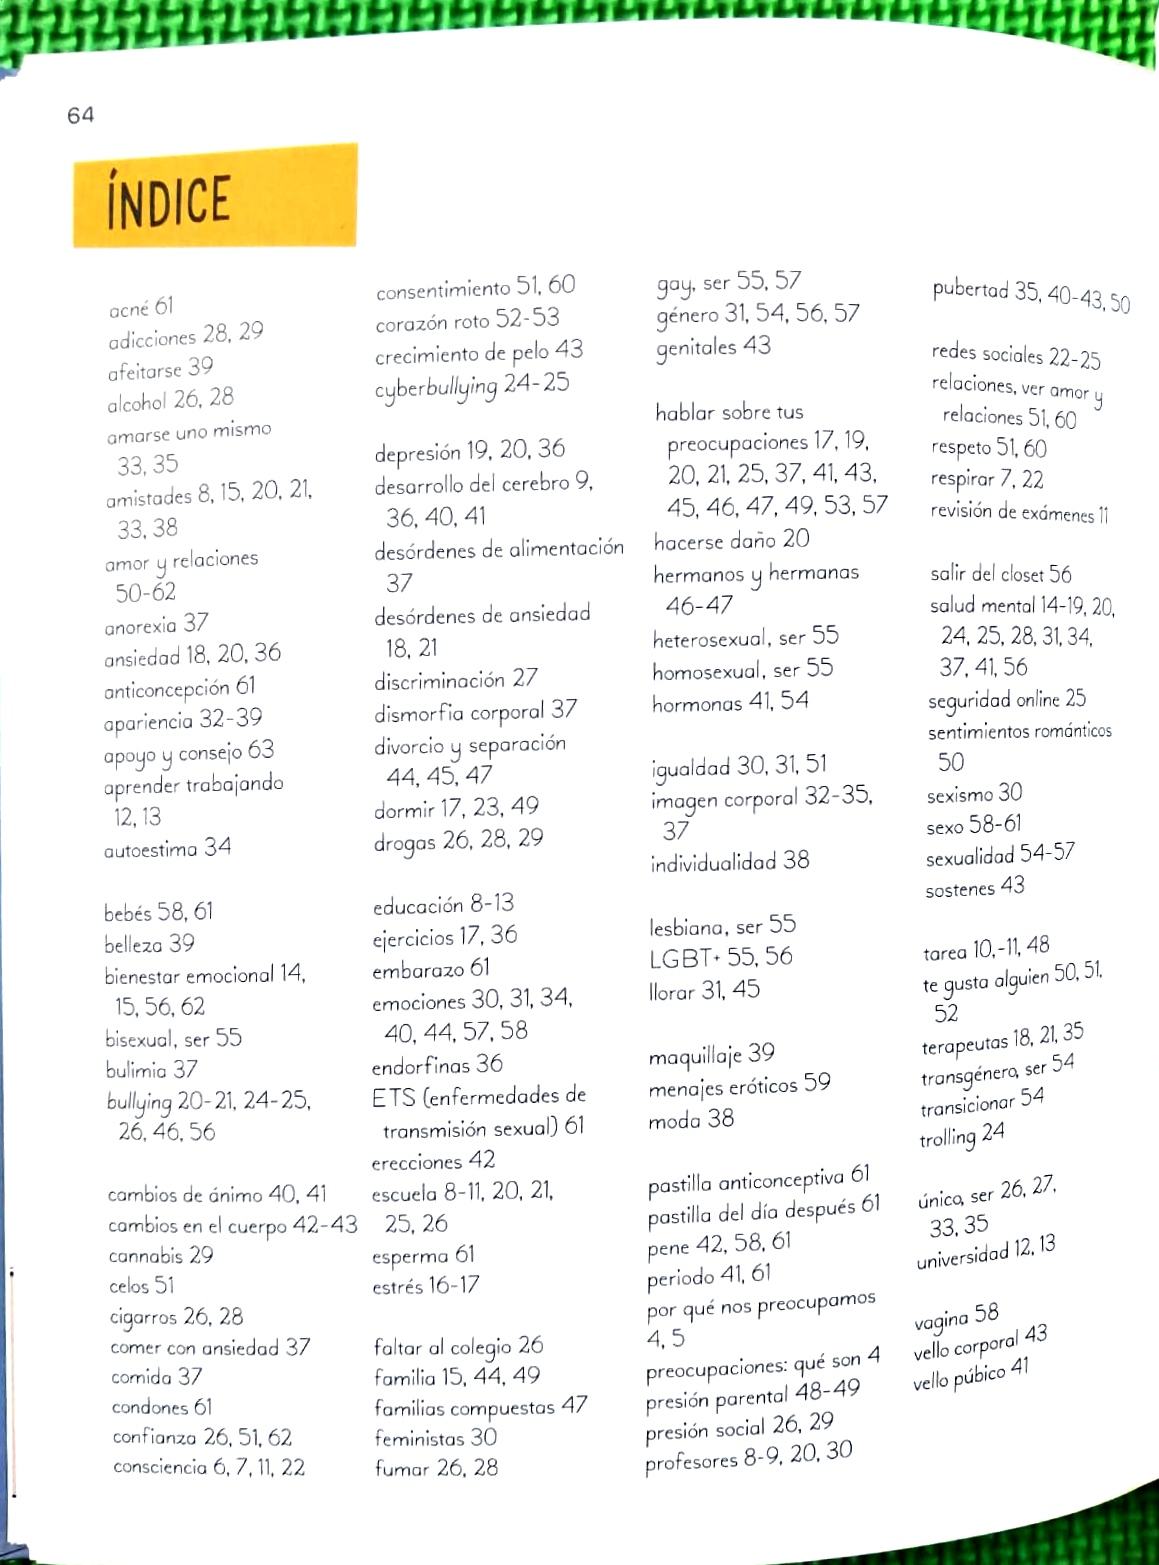 64
ÍNDICE
acné 61
adicciones 28, 29
afeitarse 39
alcohol 26, 28
amarse uno mismo
33, 35
amistades 8, 15, 20, 21,
33, 38
amor y relaciones
50-62
anorexia 37
ansiedad 18, 20, 36
anticoncepción 61
apariencia 32-39
apoyo y consejo 63
aprender trabajando
12, 13
autoestima 34
bebés 58, 61
belleza 39
bienestar emocional 14,
15, 56, 62
bisexual, ser 55
bulimia 37
bullying 20-21, 24-25,
26, 46, 56
cambios de ánimo 40, 41
cambios en el cuerpo 42-43
cannabis 29
celos 51
cigarros 26, 28
comer con ansiedad 37
comida 37
condones 61
confianza 26, 51, 62
consciencia 6, 7, 11, 22
consentimiento 51, 60
corazón roto 52-53
crecimiento de pelo 43
cyberbullying 24-25
depresión 19, 20, 36
desarrollo del cerebro 9,
36, 40, 41
desórdenes de alimentación
37
desórdenes de ansiedad
18, 21
discriminación 27
dismorfia corporal 37
divorcio y separación
44, 45, 47
dormir 17, 23, 49
drogas 26, 28, 29
educación 8-13
ejercicios 17, 36
embarazo 61
emociones 30, 31, 34,
40, 44, 57, 58
endorfinas 36
ETS (enfermedades de
transmisión sexual) 61
erecciones 42
escuela 8-11, 20, 21,
25, 26
esperma 61
estrés 16-17
faltar al colegio 26
familia 15, 44, 49
familias compuestas 47
feministas 30
fumar 26, 28
gay, ser 55, 57
género 31, 54, 56, 57
genitales 43
hablar sobre tus
preocupaciones 17, 19,
20, 21, 25, 37, 41, 43,
45, 46, 47, 49, 53, 57
hacerse daño 20
hermanos y hermanas
46-47
heterosexual, ser 55
homosexual, ser 55
hormonas 41, 54
igualdad 30, 31, 51
imagen corporal 32-35,
37
individualidad 38
lesbiana, ser 55
LGBT+ 55, 56
llorar 31, 45
maquillaje 39
menajes eróticos 59
moda 38
pastilla anticonceptiva 61
pastilla del día después 61
pene 42, 58, 61
periodo 41, 61
por qué nos preocupamos
4, 5
preocupaciones: qué son 4
presión parental 48-49
presión social 26, 29
profesores 8-9, 20, 30
pubertad 35, 40-43, 50
redes sociales 22-25
relaciones, ver amor y
relaciones 51, 60
respeto 51, 60
respirar 7, 22
revisión de exámenes 11
salir del closet 56
salud mental 14-19, 20,
24, 25, 28, 31, 34,
37, 41, 56
seguridad online 25
sentimientos románticos
50
sexismo 30
sexo 58-61
sexualidad 54-57
sostenes 43
tarea 10,-11, 48
te gusta alguien 50, 51,
52
terapeutas 18, 21, 35
transgénero, ser 54
transicionar 54
trolling 24
único, ser 26, 27,
33, 35
universidad 12, 13
vagina 58
vello corporal 43
vello púbico 41